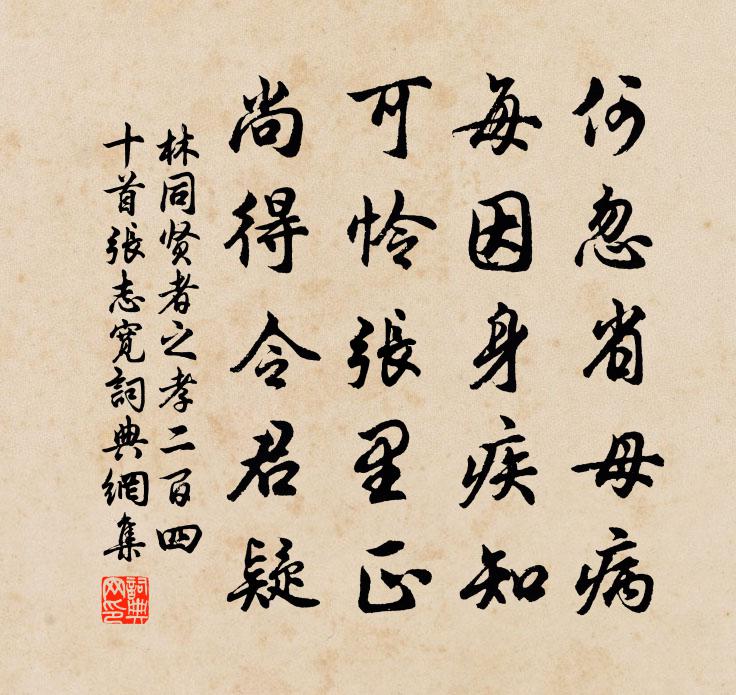 何忽省母病
每因身疾知
可怜張里正
尚得令君疑
林同贤者之孝二百四
十首張志寬詞典網集
詞典
网印